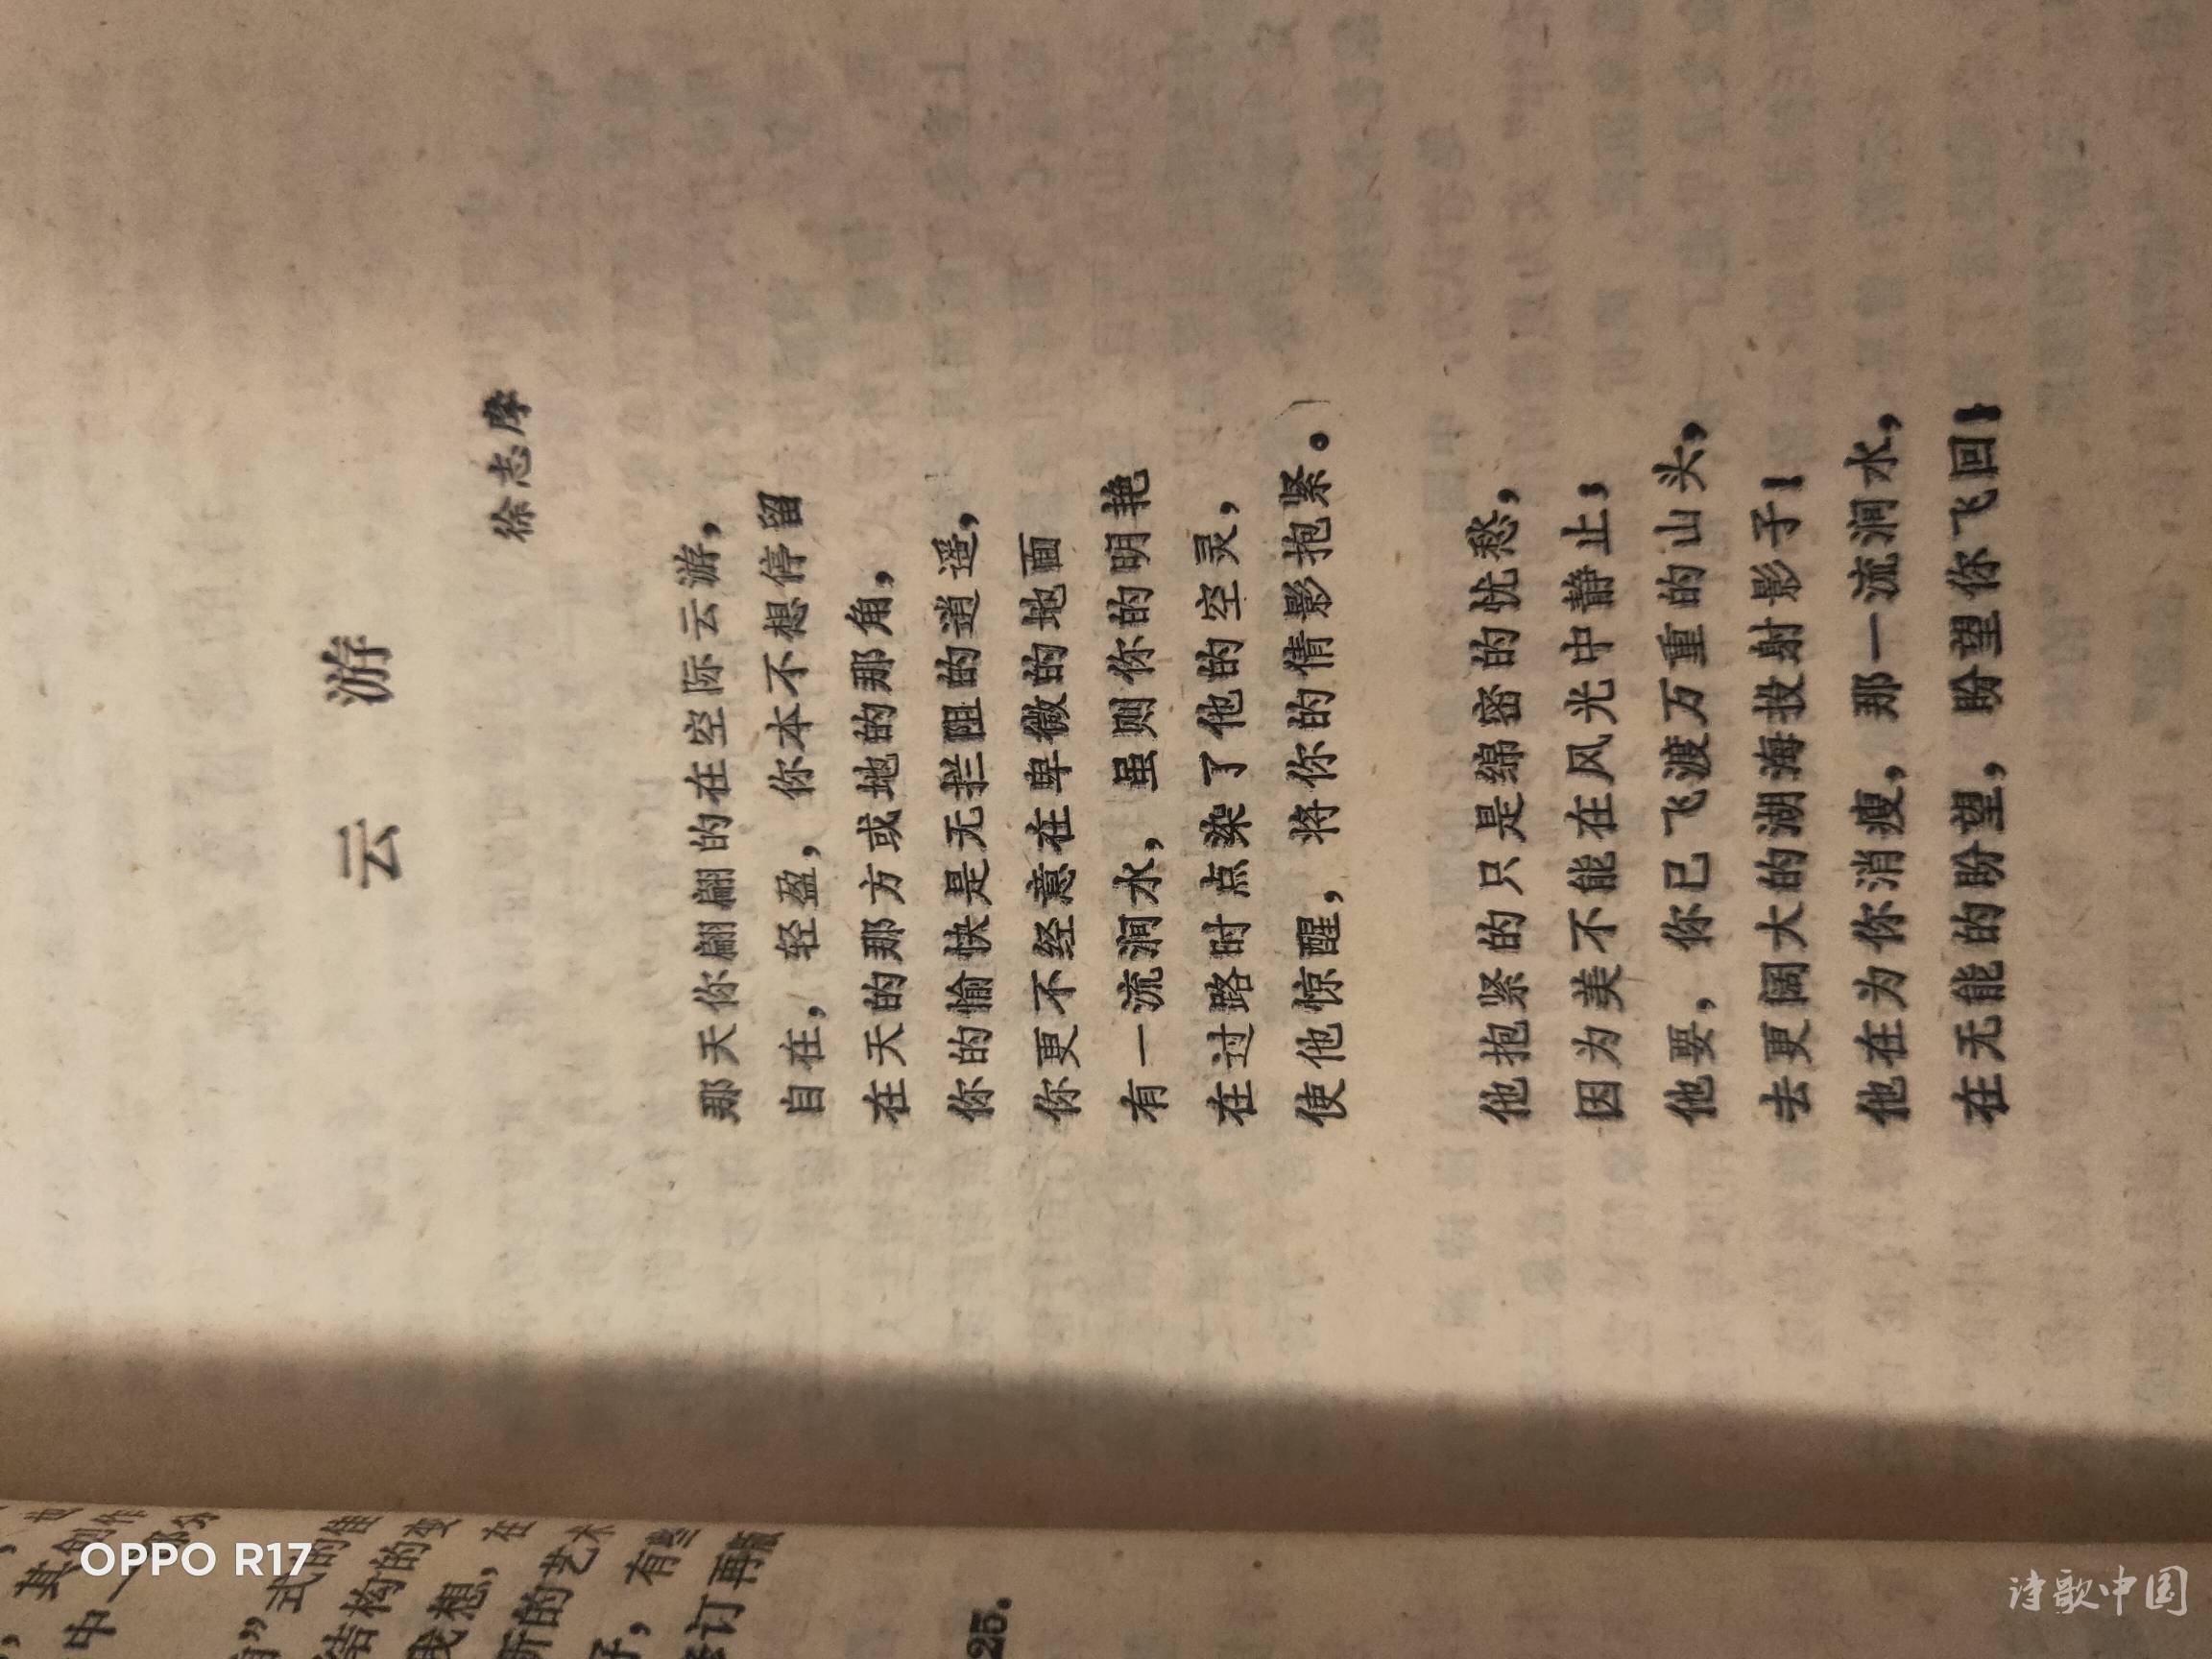 云 游
徐志摩
那天你翩翩的在空际云游，
自在，轻盈，你本不想停留
在天的那方或地的那角，
你的愉快是无拦阻的逍遥，
你更不经意在卑微的地面
有一流涧水，虽则你的明艳
在过路时点染了他的空灵，
使他惊醒，将你的倩影抱紧。
他抱紧的只是绵密的忧愁，
因为美不能在风光中静止；
他要，你已飞渡万重的山头，
去更阔大的湖海投射影子！
他在为你消瘦，那一流涧水，
在无能的盼望，盼望你飞回！
其创作
中一部分
式的佳
结构的变
我想，在
新的艺术
有些
修订再版
25.
OPPO R17
诗歌中国